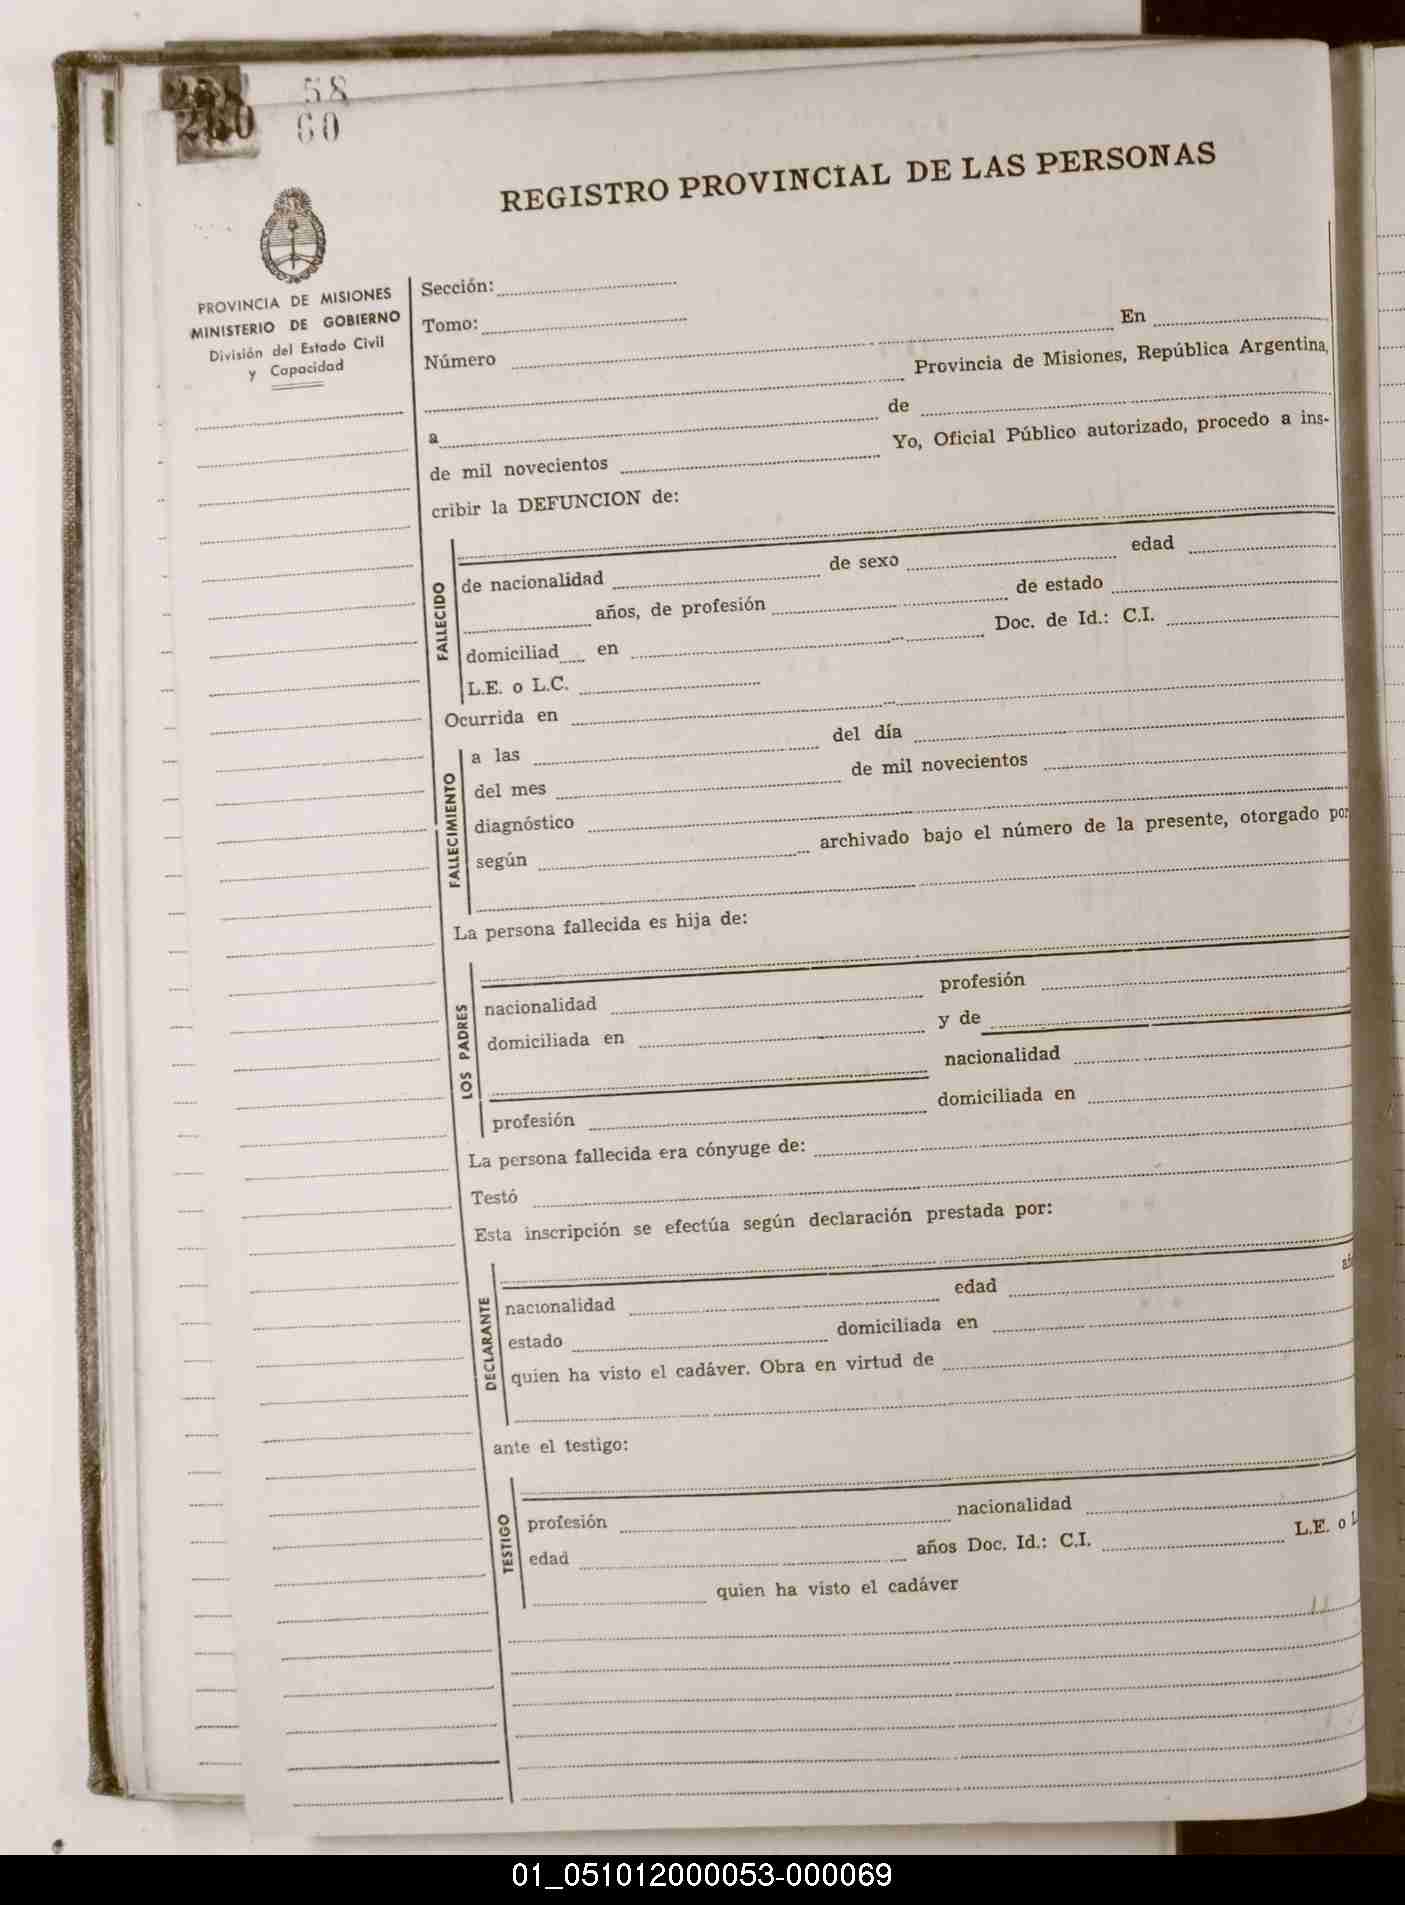 58
60
REGISTRO PROVINCIAL DE LAS PERSONAS
PROVINCIA DE MISIONES
MINISTERIO DE GOBIERNO
División del Estado Civil
y Capacidad
Sección:
Tomo:
Número En
Provincia de Misiones, República Argentina,
a de
de mil novecientos Yo, Oficial Público autorizado, procedo a ins-
cribir la DEFUNCION de:
FALLECIDO
de nacionalidad de sexo edad
años, de profesión de estado
domiciliad en Doc. de Id.: C.I.
L.E. o L.C.
Ocurrida en
FALLECIMIENTO
a las del día
del mes de mil novecientos
diagnóstico
según archivado bajo el número de la presente, otorgado por
La persona fallecida es hija de:
LOS PADRES
nacionalidad profesión
domiciliada en y de
nacionalidad
profesión domiciliada en
La persona fallecida era cónyuge de:
Testó
Esta inscripción se efectúa según declaración prestada por:
DECLARANTE
nacionalidad edad
estado domiciliada en
quien ha visto el cadáver. Obra en virtud de
ante el testigo:
TESTIGO
profesión nacionalidad
edad años Doc. Id.: C.I. L.E. o
quien ha visto el cadáver
01_051012000053-000069